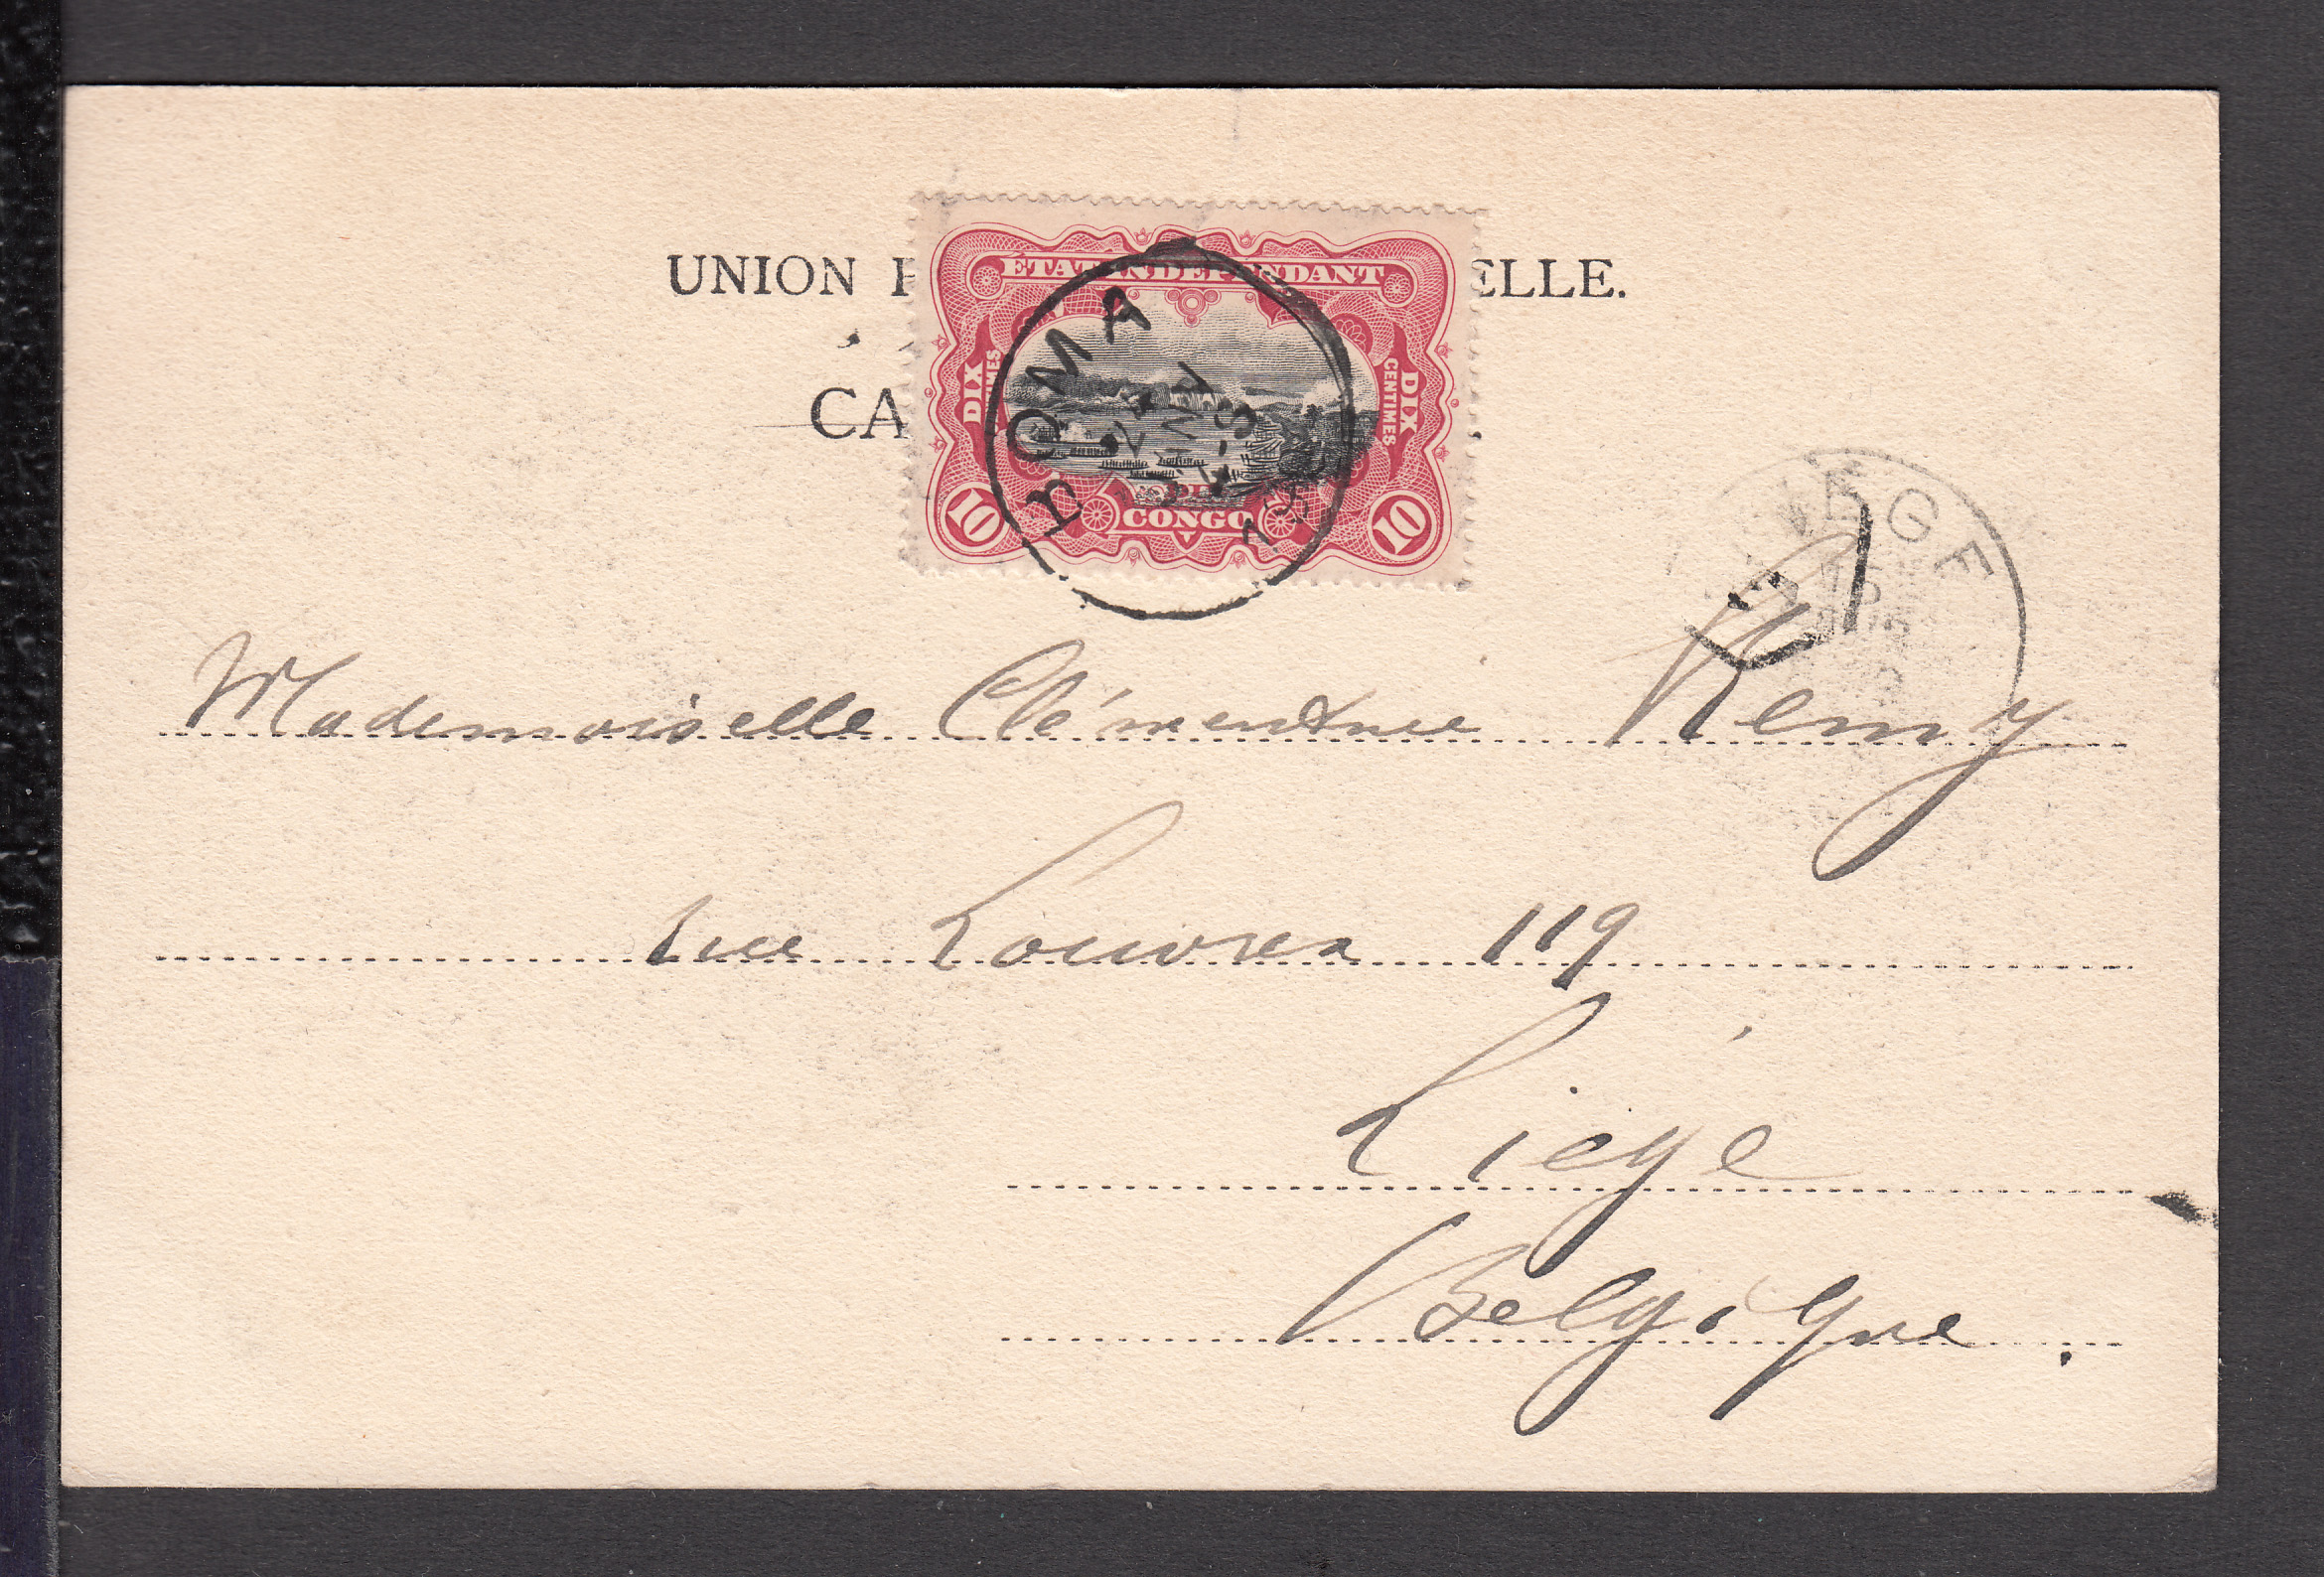 UNION P ELLE.
CA
ÉTAT INDÉPENDANT
DIX CENTIMES
DIX CENTIMES
DU
CONGO
10
10
BOMA
LIÈGE
Mademoiselle Clémentine Remy
rue Louvrex 119
Liège
Belgique.